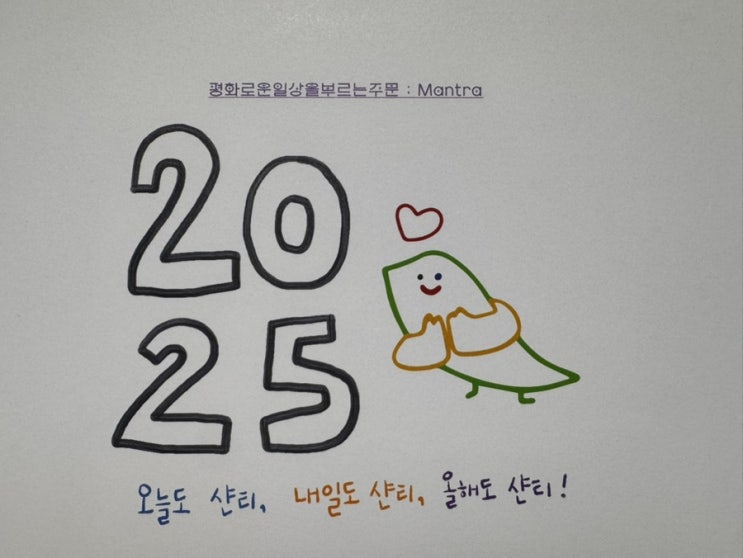 평화로운일상을부르는주문 : Mantra
20
25
오늘도 샨티, 내일도 샨티, 올해도 샨티!